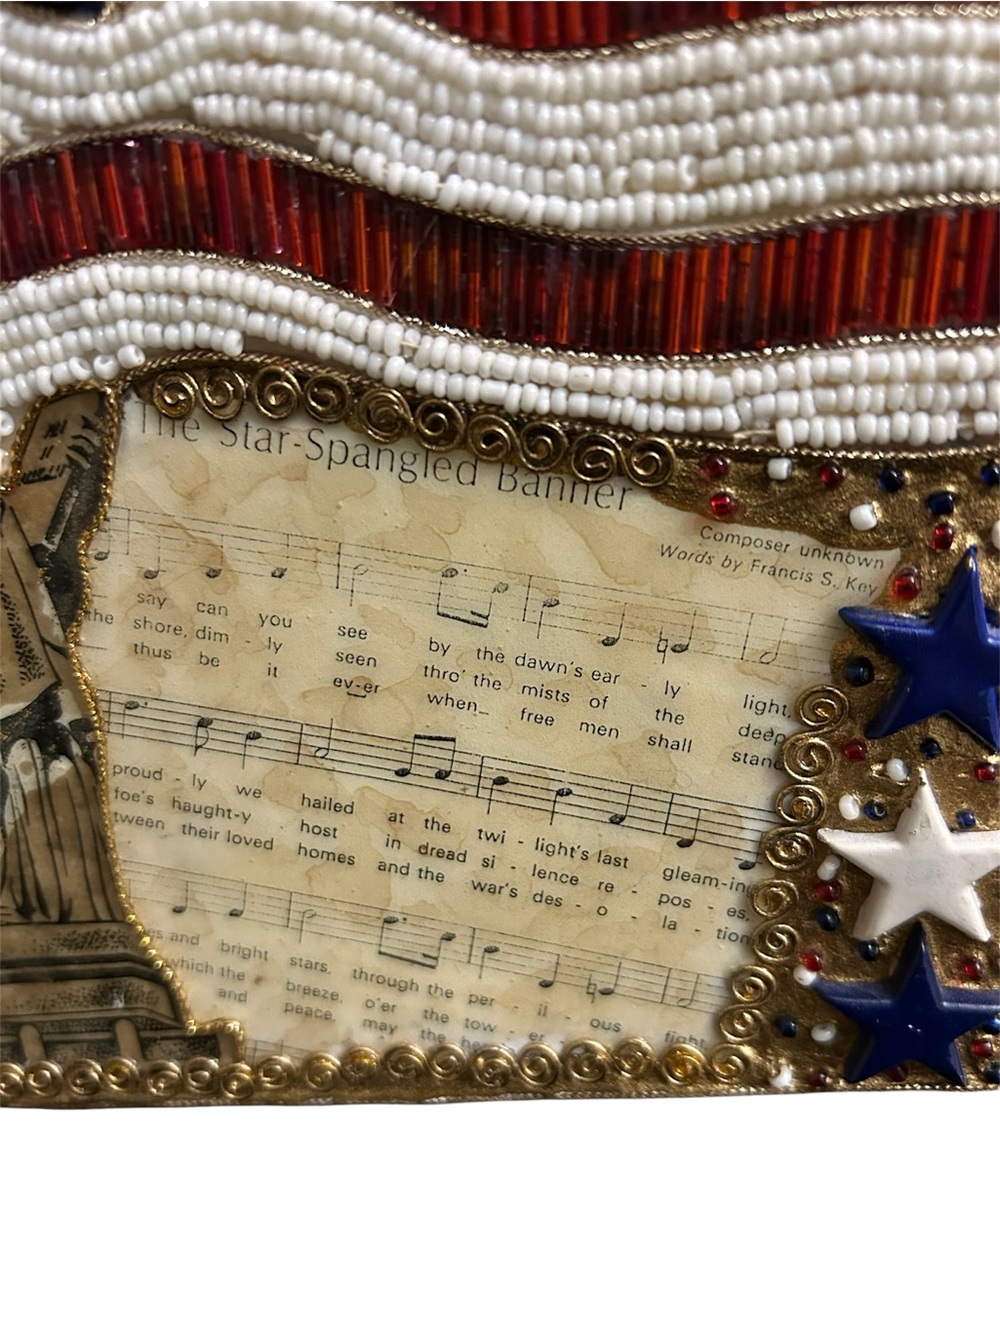 The Star-Spangled Banner
Composer unknown
Words by Francis S. Key
say can you see by the dawn's ear - ly light,
the shore, dim - ly seen thro' the mists of the deep
thus be it ev-er when free men shall stand
proud - ly we hailed at the twi - light's last gleam-in
foe's haught-y host in dread si - lence re - pos - es,
tween their loved homes and the war's des - o - la - tion
es and bright stars, through the per - il - ous fight,
which the breeze, o'er the tow - er
and peace, may the